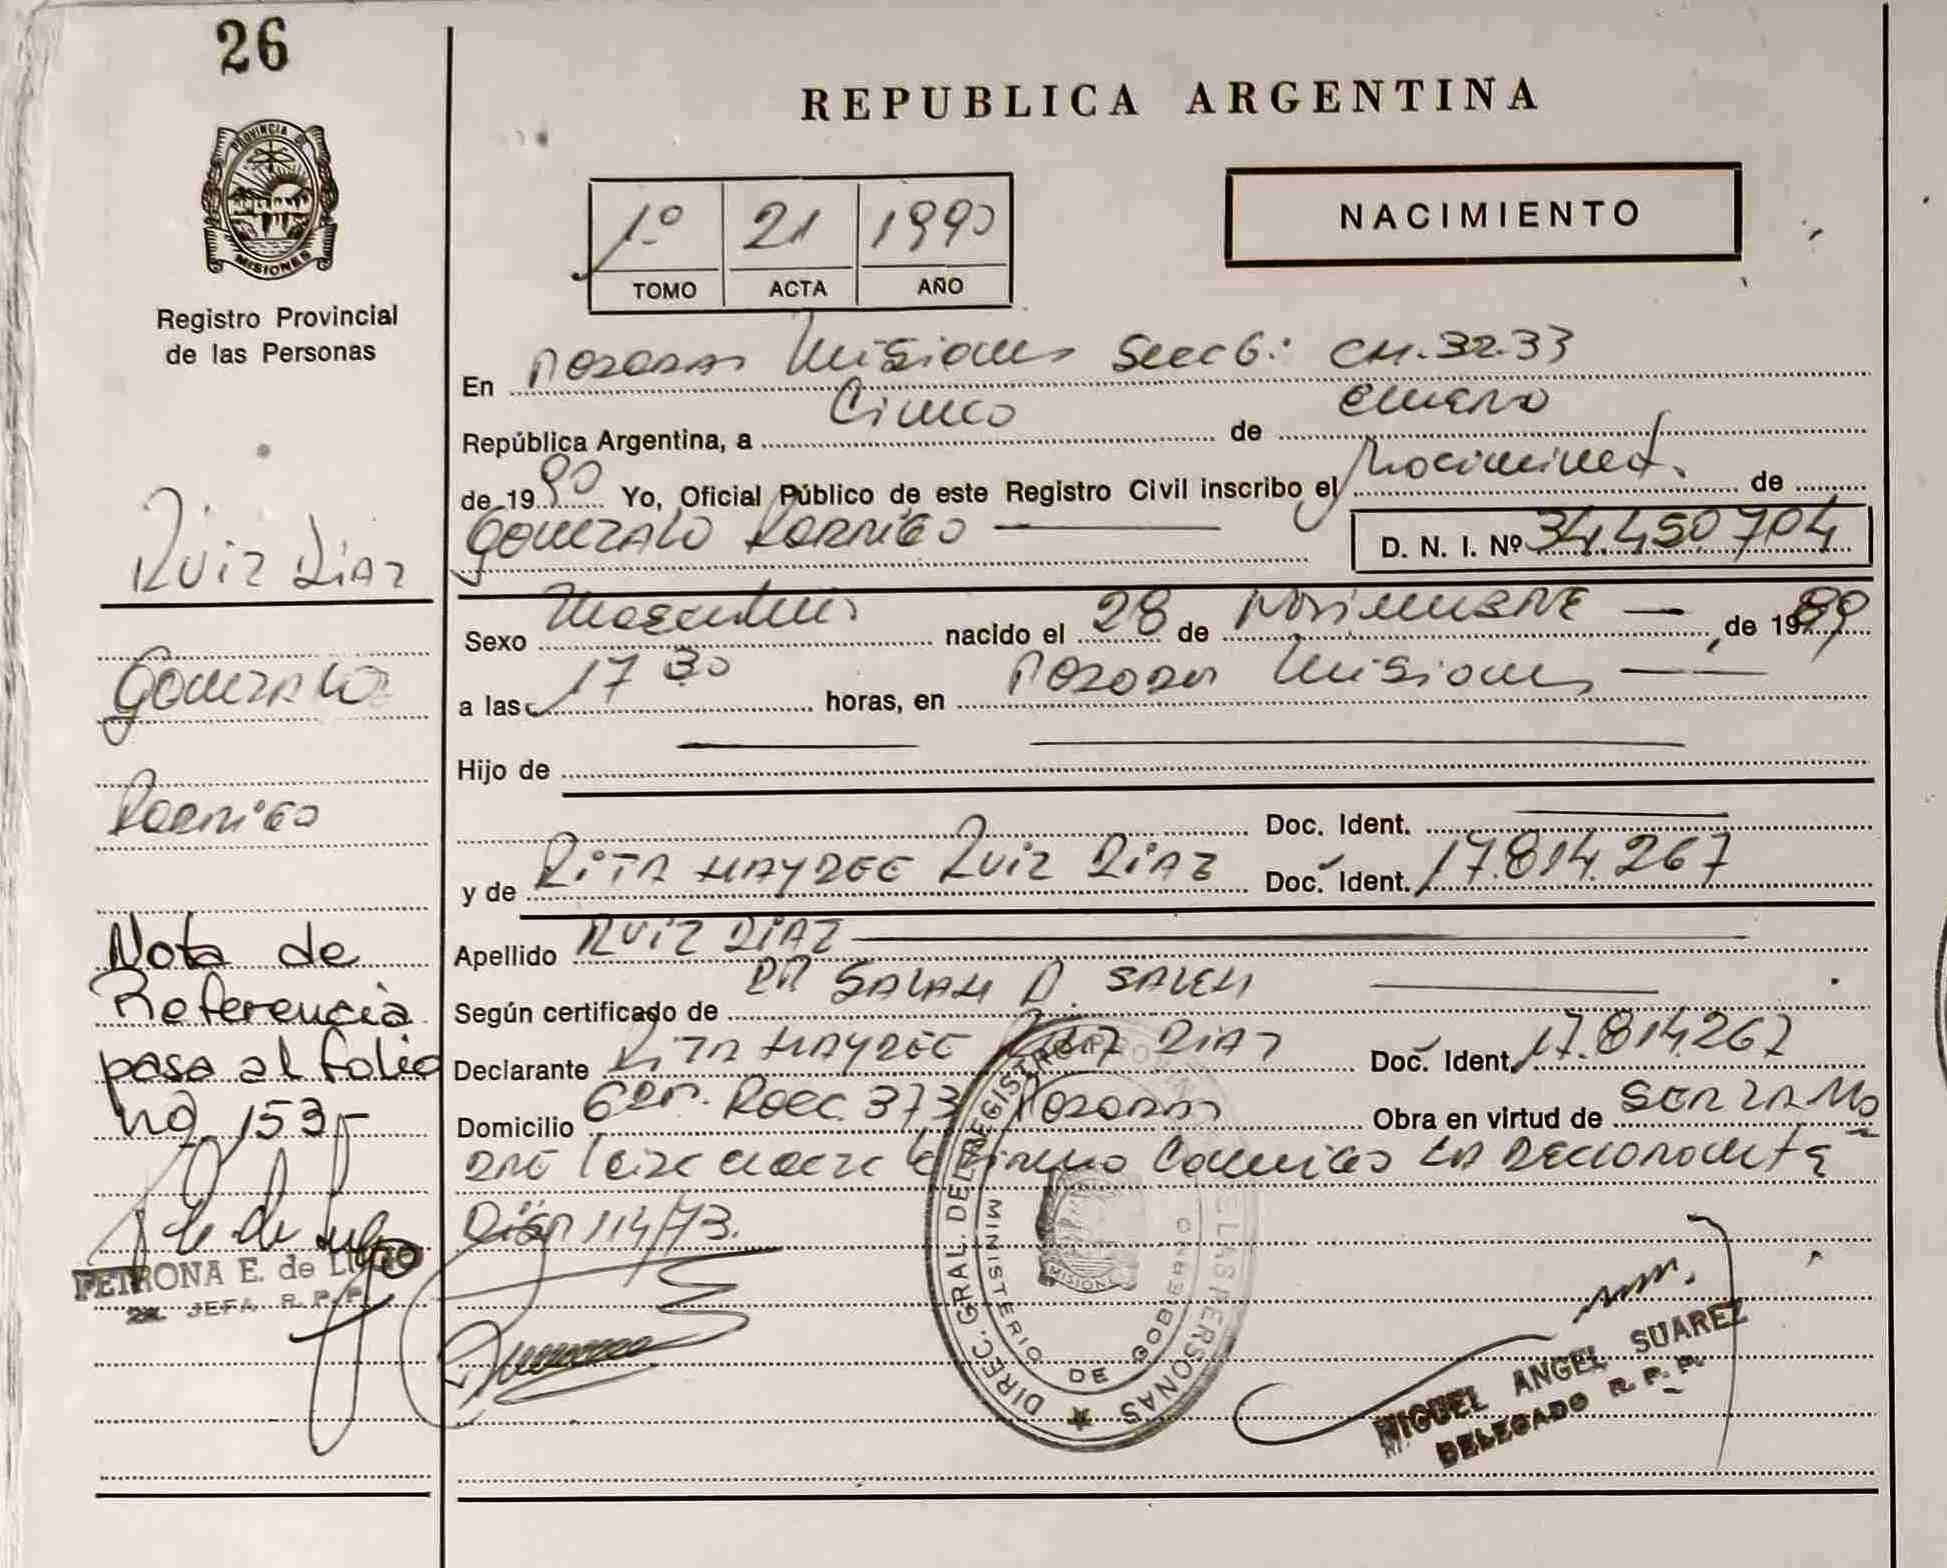 26
REPUBLICA ARGENTINA
PROVINCIA D
MISIONES
Registro Provincial
de las Personas
1º 21 1990
TOMO ACTA AÑO
NACIMIENTO
En Posadas Misiones Secc 6: CH. 32.33
República Argentina, a Cinco de enero
de 1990 Yo, Oficial Público de este Registro Civil inscribo el Nacimient. de
Gonzalo Rodrigo D. N. I. Nº 34.450.704
Sexo Masculino nacido el 28 de Noviembre de 1989
a las 17 30 horas, en Posadas Misiones
Hijo de
Doc. Ident.
y de Rita Haydee Ruiz Diaz Doc. Ident. 17.814.267
Apellido Ruiz Diaz
Según certificado de DR Salah D. Saleh
Declarante Rita Haydee Ruiz Diaz Doc. Ident. 17.814.267
Domicilio Gral. Roca 373 Posadas Obra en virtud de ser la m
la declarante
Disp 114/73.
Ruiz Diaz
Gonzalo
Rodrigo
Nota de
Referencia
pasa al folio
nº 153-
PETRONA E. de LUGO
2a. JEFA R.P.P.
DIREC. GRAL. DEL REGISTRO PROVINCIAL DE LAS PERSONAS
MINISTERIO DE GOBIERNO
MISIONES
MIGUEL ANGEL SUAREZ
DELEGADO R. P. P.